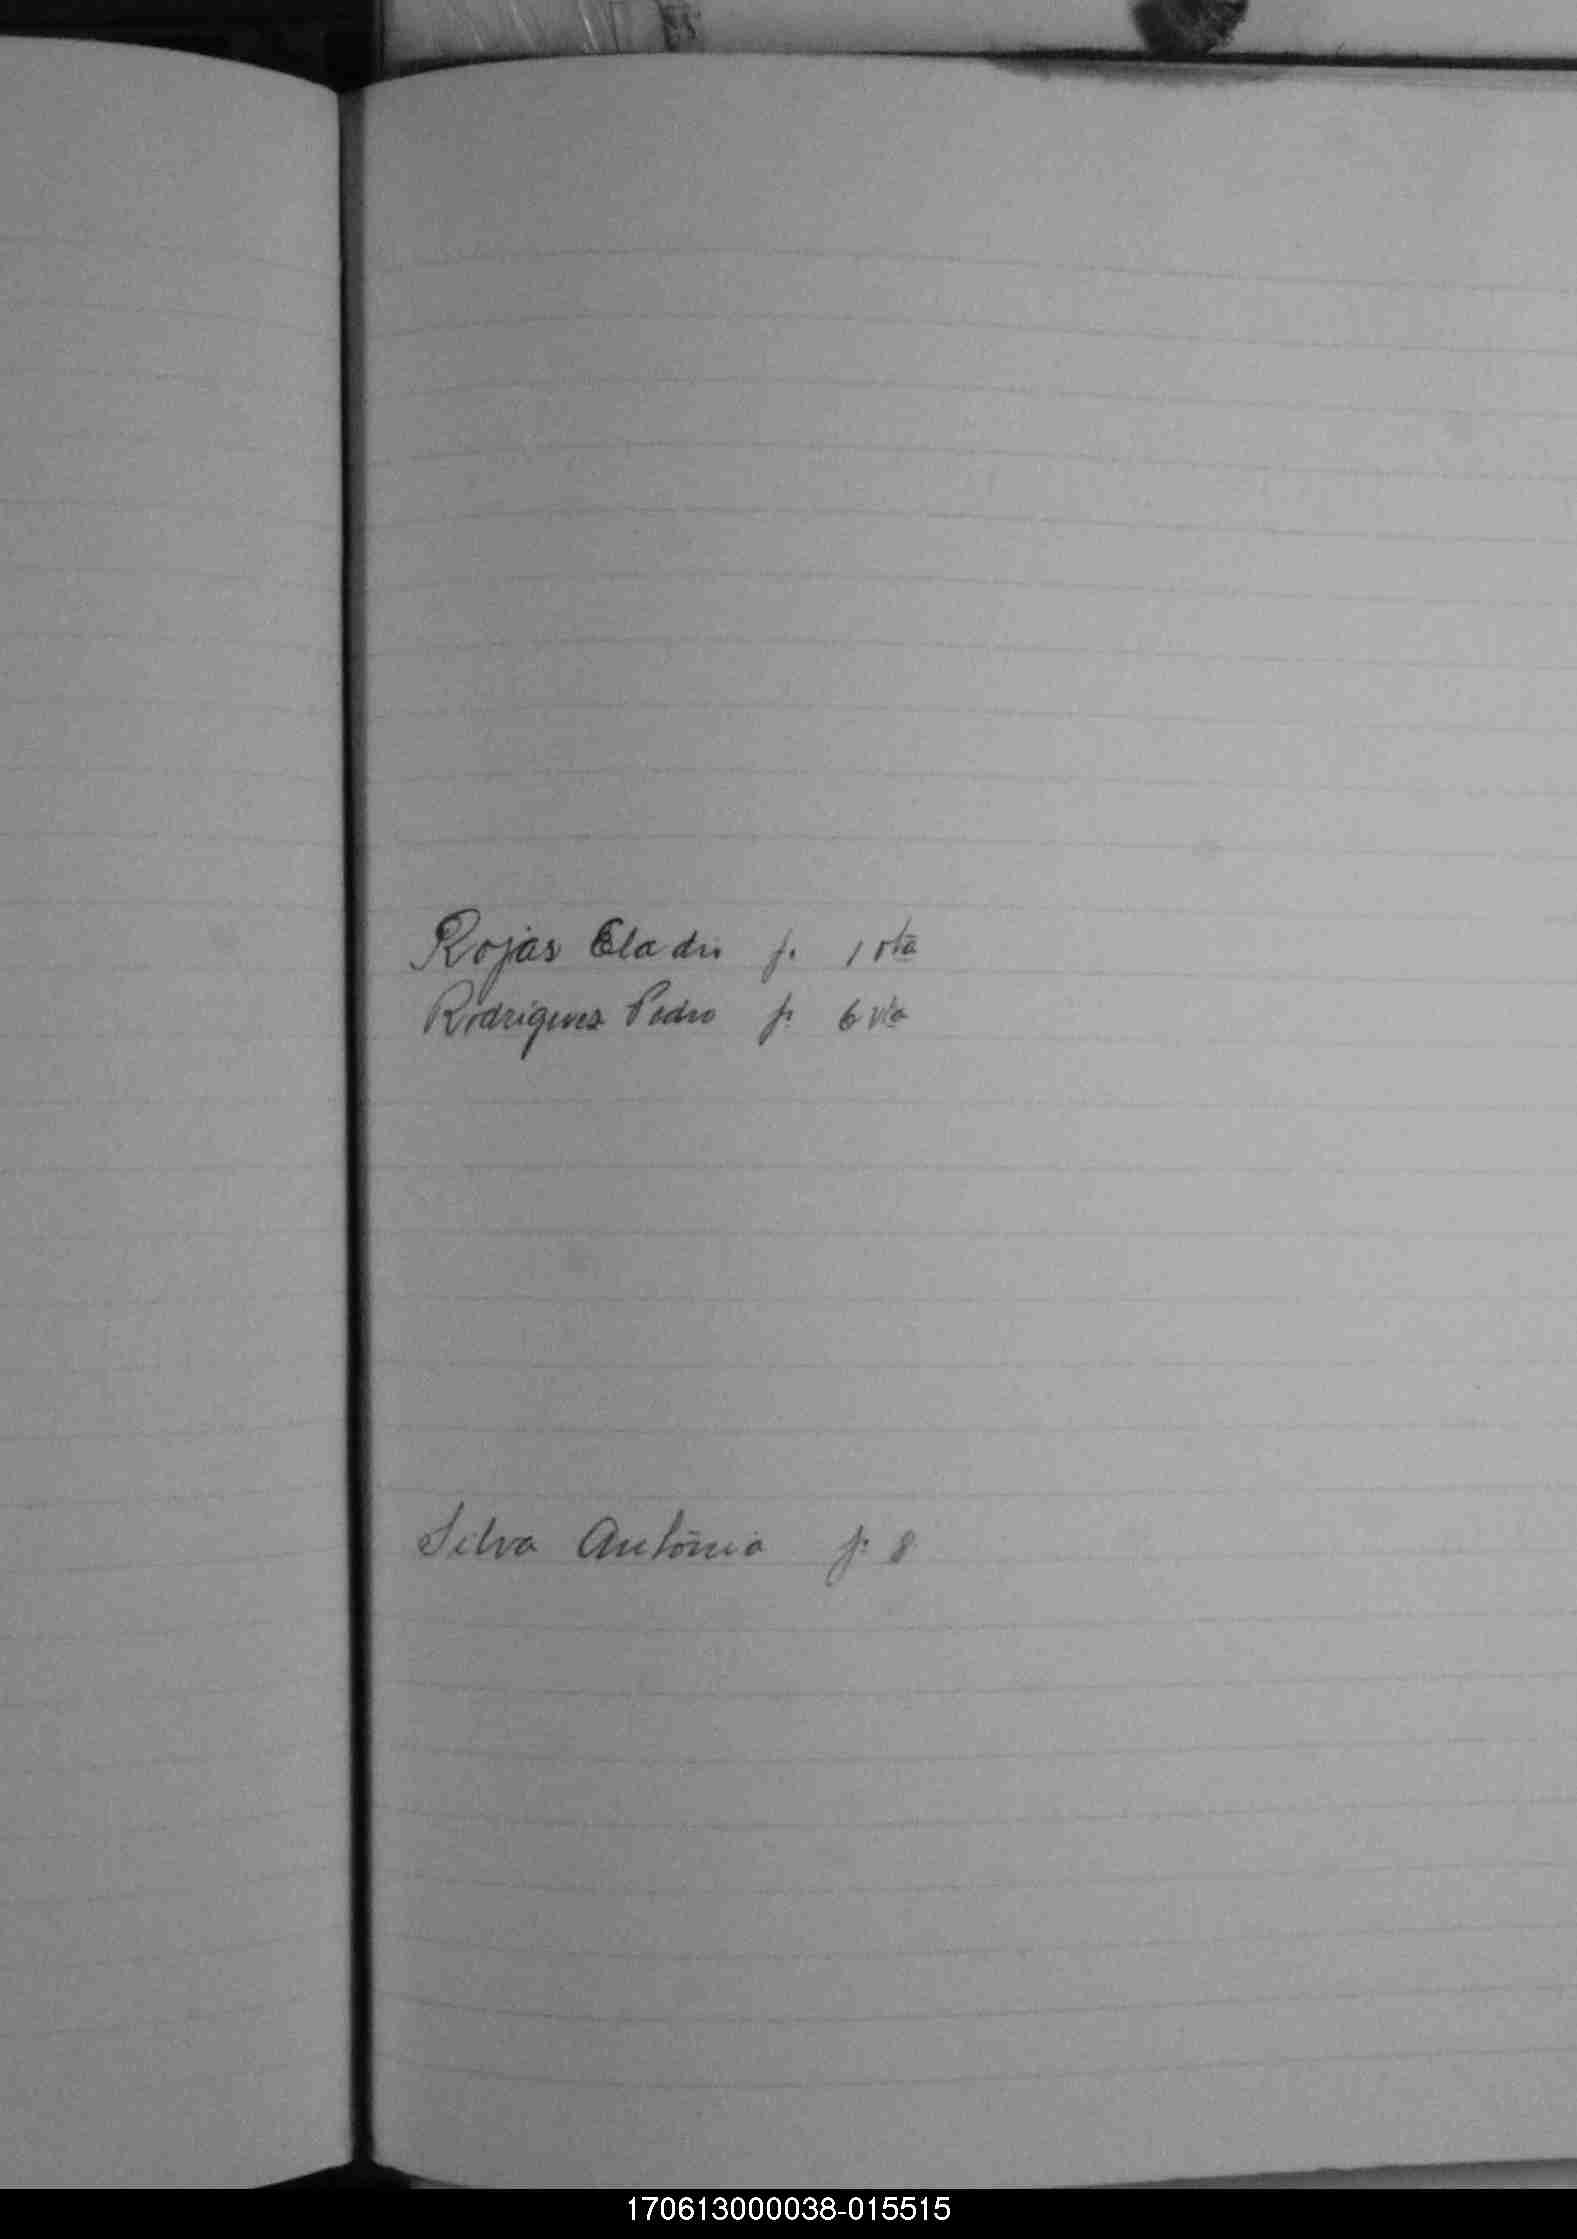 Rojas Eladio f. 1 vta
Rodriguez Pedro f. 6 vta
Silva Antonio f. 8
170613000038-015515